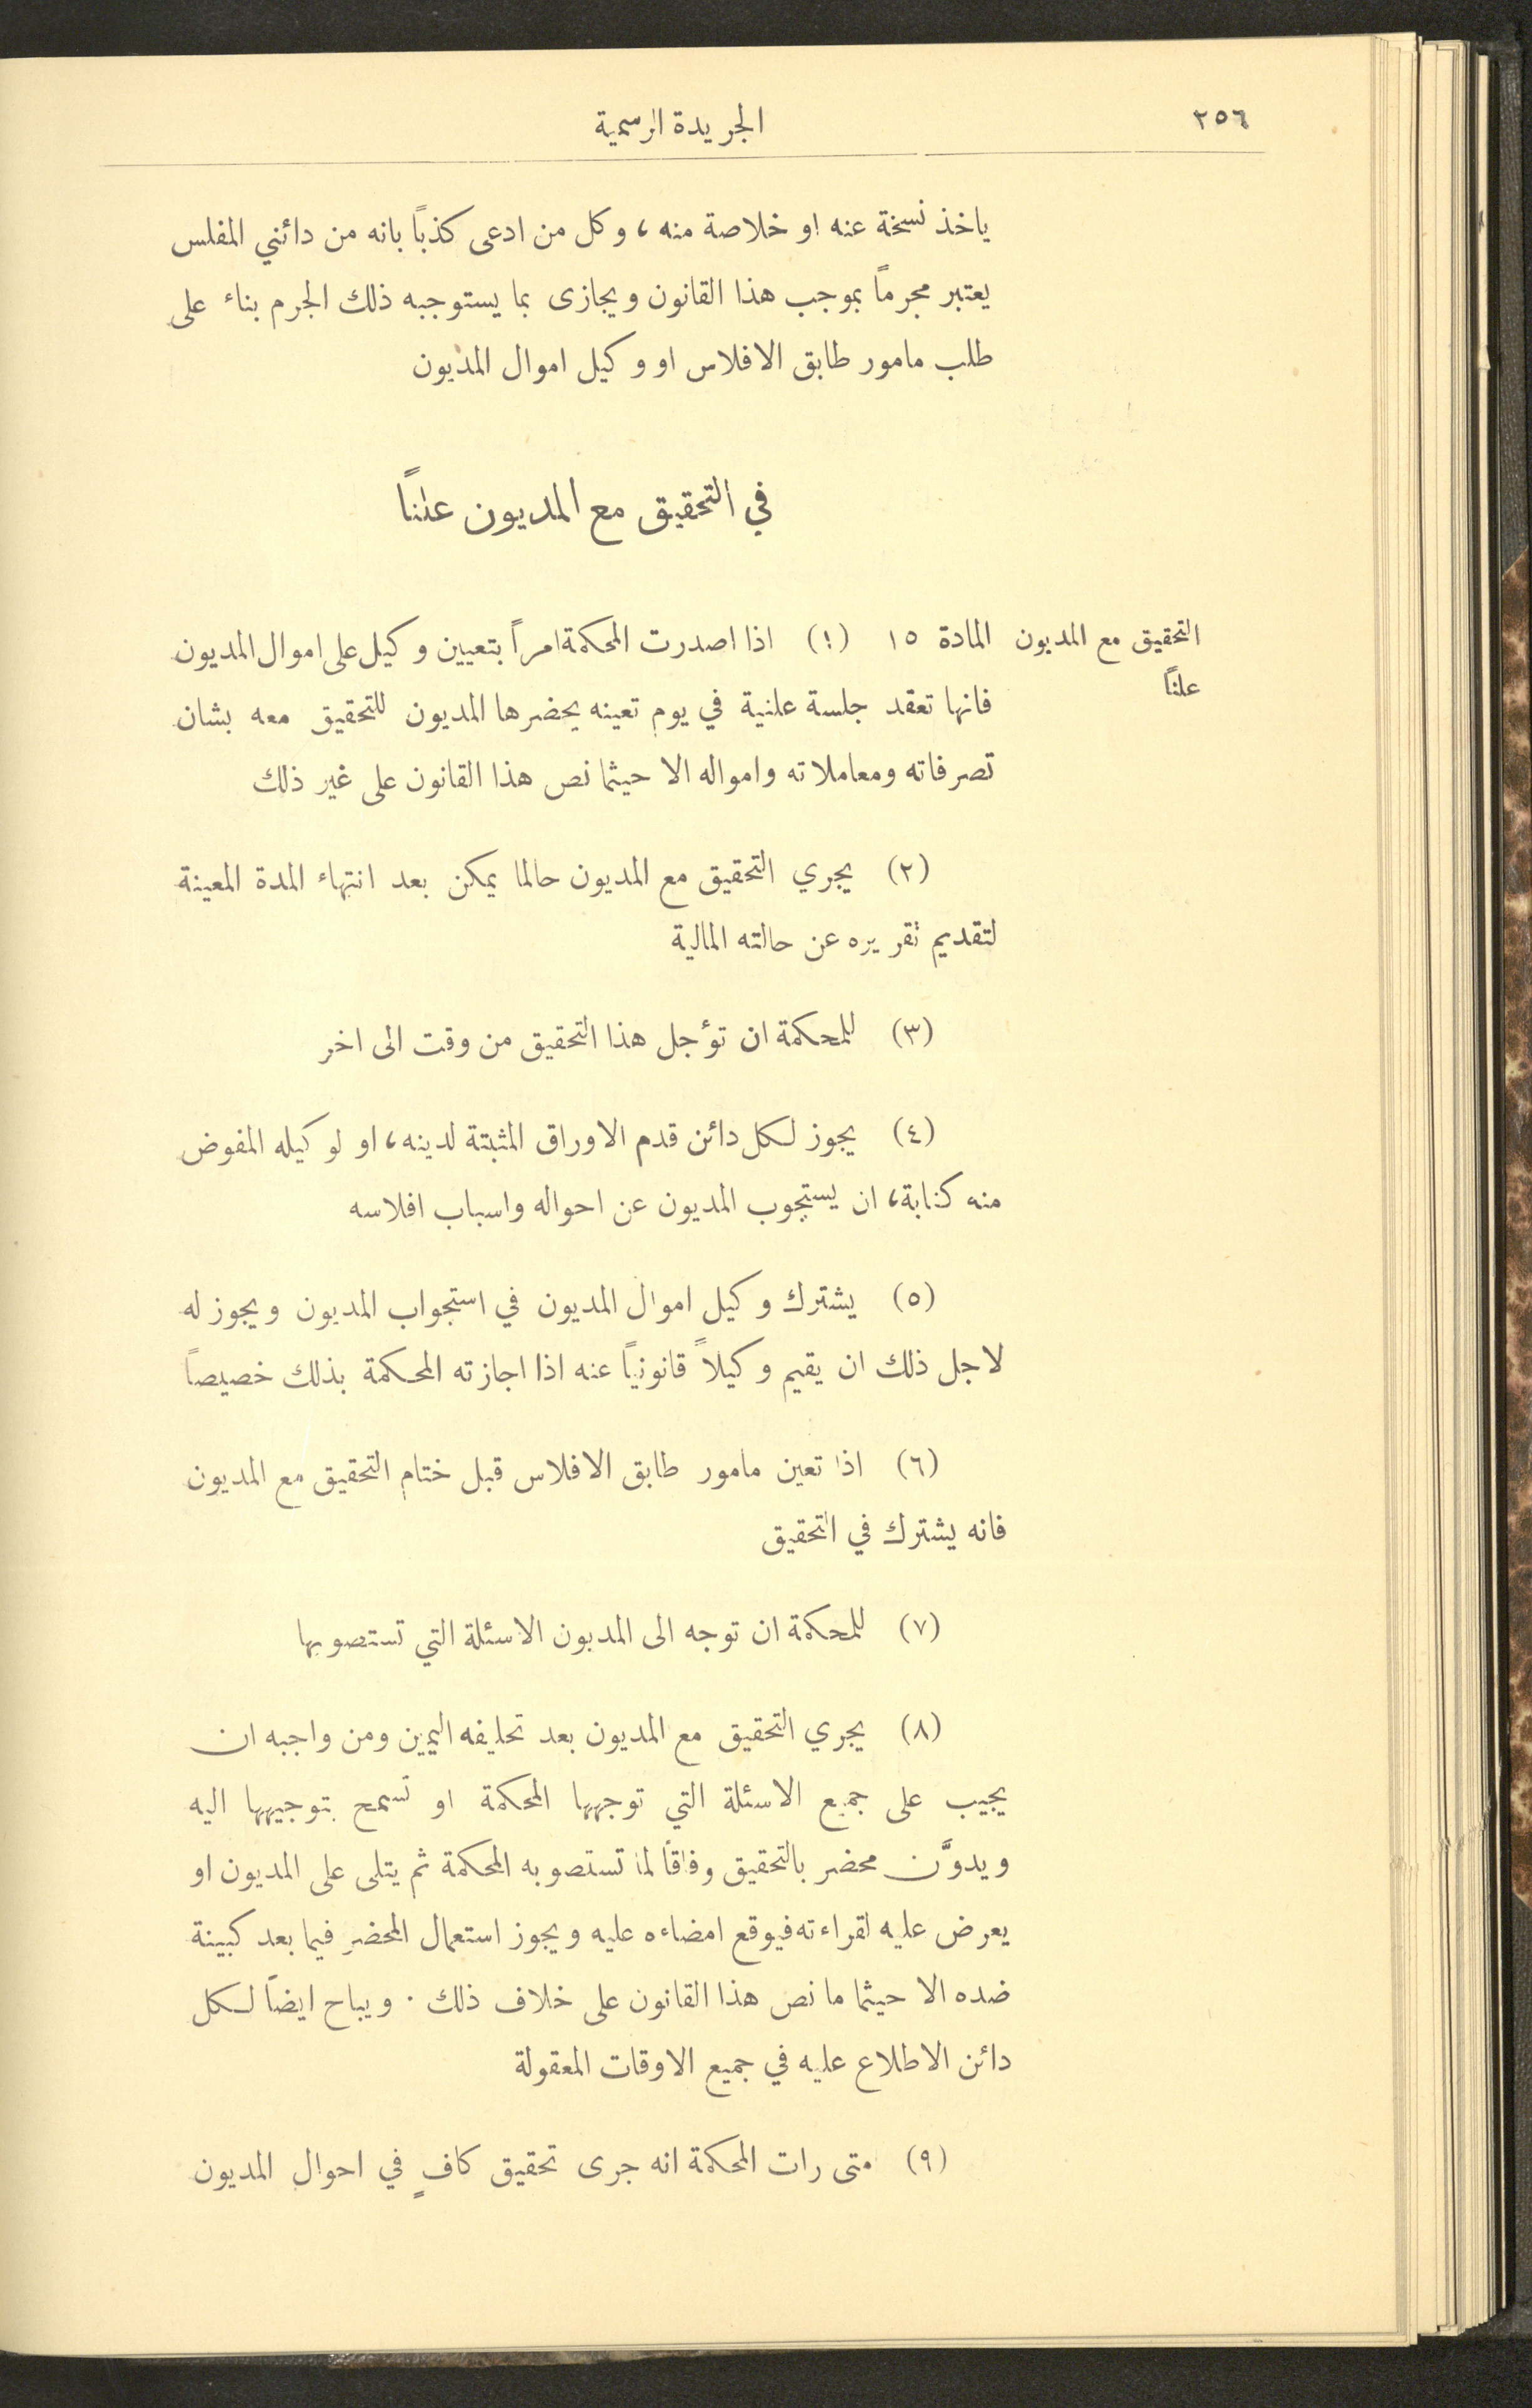 ٢٥٦
الجريدة الرسمية
ياخذ نسخة عنه او خلاصة منه، وكل من ادعى كذباً بانه من دائني المفلس
يعتبر مجرماً بموجب هذا القانون ويجازى بما يستوجبه ذلك الجرم بناء على
طلب مامور طابق الافلاس او وكيل اموال المديون
في التحقيق مع المديون علناً
التحقيق مع المديون
علناً
المادة ١٥ (١) اذا اصدرت المحكمة امراً بتعيين وكيل على اموال المديون
فانها تعقد جلسة علنية في يوم تعينه يحضرها المديون للتحقيق معه بشان
تصرفاته ومعاملاته وامواله الا حيثما نص هذا القانون على غير ذلك
(٢) يجري التحقيق مع المديون حالما يمكن بعد انتهاء المدة المعينة
لتقديم تقريره عن حالته المالية
(٣) للمحكمة ان تؤجل هذا التحقيق من وقت الى اخر
(٤) يجوز لكل دائن قدم الاوراق المثبتة لدينه، او لوكيله المفوض
منه كتابة، ان يستجوب المديون عن احواله واسباب افلاسه
(٥) يشترك وكيل اموال المديون في استجواب المديون ويجوز له
لاجل ذلك ان يقيم وكيلاً قانونياً عنه اذا اجازته المحكمة بذلك خصيصاً
(٦) اذا تعين مامور طابق الافلاس قبل ختام التحقيق مع المديون
فانه يشترك في التحقيق
(٧) للمحكمة ان توجه الى المديون الاسئلة التي تستصوبها
(٨) يجري التحقيق مع المديون بعد تحليفه اليمين ومن واجبه ان
يجيب على جميع الاسئلة التي توجهها المحكمة او تسمح بتوجيهها اليه
ويدوَّن محضر بالتحقيق وفاقاً لما تستصوبه المحكمة ثم يتلى على المديون او
يعرض عليه لقراءته فيوقع امضاءه عليه ويجوز استعمال المحضر فيما بعد كبينة
ضده الا حيثما ما نص هذا القانون على خلاف ذلك . ويباح ايضاً لكل
دائن الاطلاع عليه في جميع الاوقات المعقولة
(٩) متى رات المحكمة انه جرى تحقيق كافٍ في احوال المديون